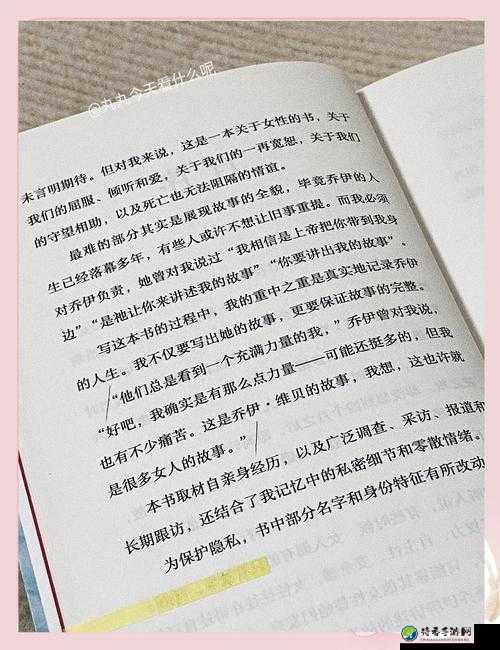 @丸丸今天看什么呢
未言明期待。但对我来说，这是一本关于女性的书，关于
我们的屈服、倾听和爱，关于我们的一再宽恕，关于我们
的守望相助，以及死亡也无法阻隔的情谊。
最难的部分其实是展现故事的全貌，毕竟乔伊的人
生已经落幕多年，有些人或许不想让旧事重提。而我必须
对乔伊负责，她曾对我说过“我相信是上帝把你带到我身
边”“是祂让你来讲述我的故事”“你要讲出我的故事”。
写这本书的过程中，我的重中之重是真实地记录乔伊
的人生。我不仅要写出她的故事，更要保证故事的完整。
“他们总是看到一个充满力量的我，”乔伊曾对我说，
“好吧，我确实是有那么点力量——可能还挺多的，但我
也有不少痛苦。这是乔伊·维贝的故事，我想，这也许就
是很多女人的故事。”
本书取材自亲身经历，以及广泛调查、采访、报道和
长期跟访，还结合了我记忆中的私密细节和零散情绪。
为保护隐私，书中部分名字和身份特征有所改动
骑看手游网